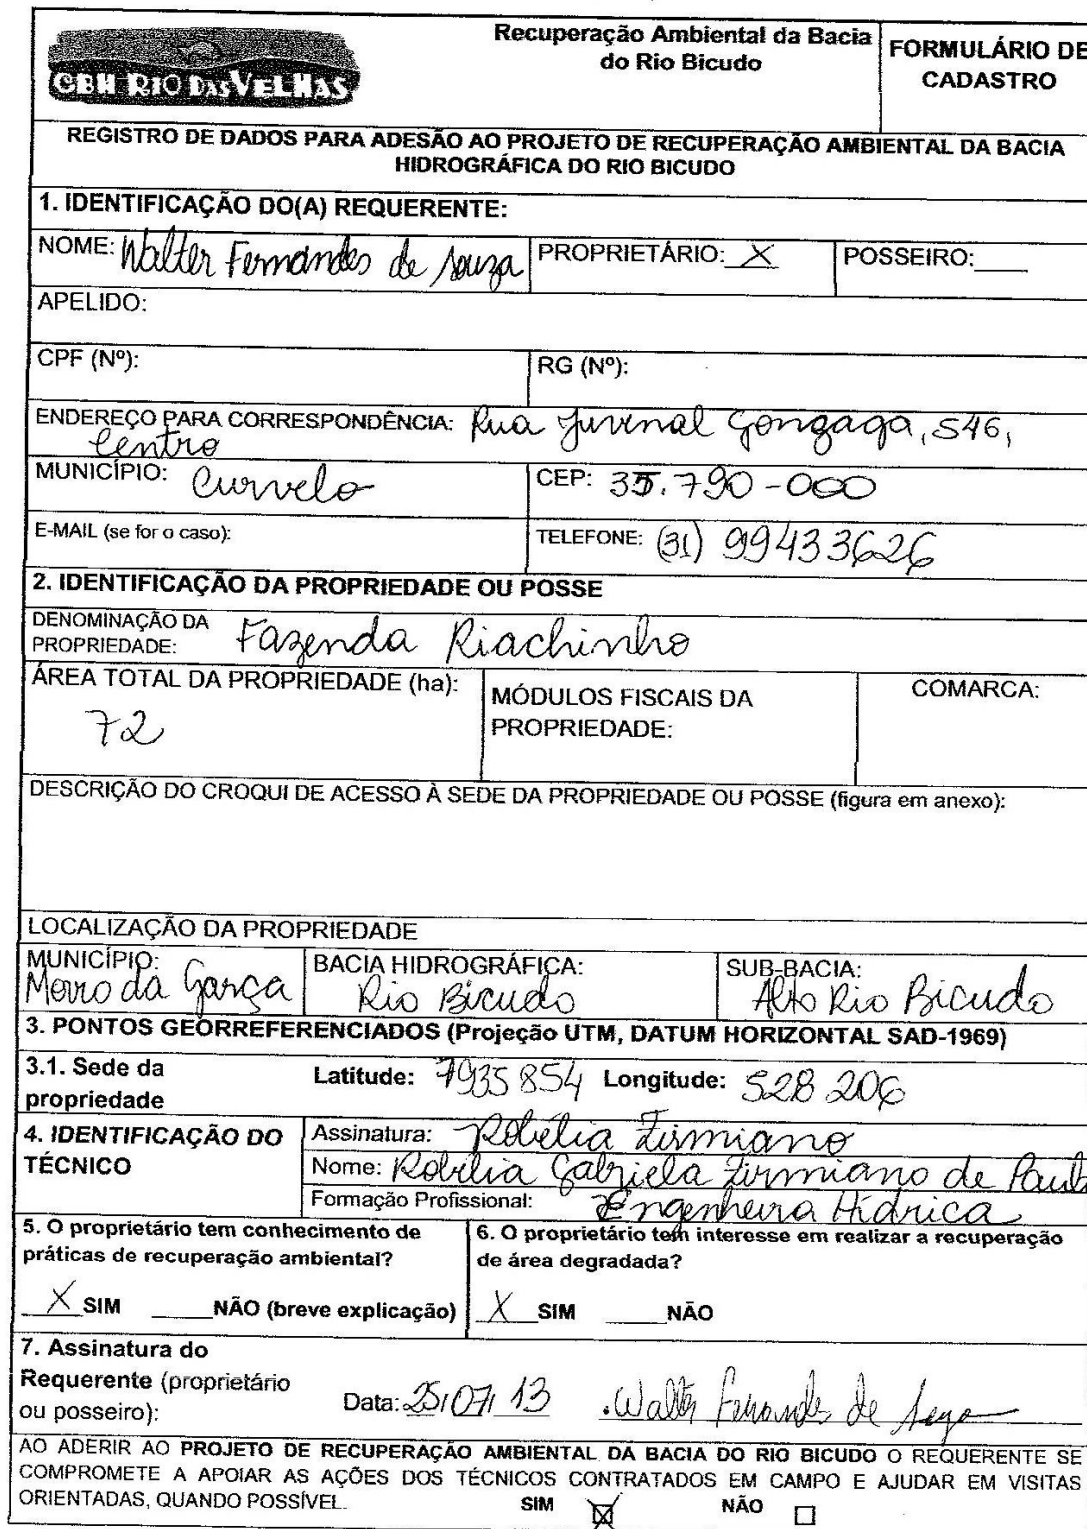 CBH RIO DAS VELHAS
Recuperação Ambiental da Bacia
do Rio Bicudo
FORMULÁRIO DE
CADASTRO
REGISTRO DE DADOS PARA ADESÃO AO PROJETO DE RECUPERAÇÃO AMBIENTAL DA BACIA
HIDROGRÁFICA DO RIO BICUDO
1. IDENTIFICAÇÃO DO(A) REQUERENTE:
NOME: Walter Fernandes de Souza PROPRIETÁRIO: X POSSEIRO:____
APELIDO:
CPF (Nº): RG (Nº):
ENDEREÇO PARA CORRESPONDÊNCIA: Rua Juvenal Gonzaga, 546,
Centro
MUNICÍPIO: Curvelo CEP: 35.790-000
E-MAIL (se for o caso): TELEFONE: (31) 99433626
2. IDENTIFICAÇÃO DA PROPRIEDADE OU POSSE
DENOMINAÇÃO DA
PROPRIEDADE: Fazenda Riachinho
ÁREA TOTAL DA PROPRIEDADE (ha):
72
MÓDULOS FISCAIS DA
PROPRIEDADE:
COMARCA:
DESCRIÇÃO DO CROQUI DE ACESSO À SEDE DA PROPRIEDADE OU POSSE (figura em anexo):
LOCALIZAÇÃO DA PROPRIEDADE
MUNICÍPIO:
Morro da Garça
BACIA HIDROGRÁFICA:
Rio Bicudo
SUB-BACIA:
Alto Rio Bicudo
3. PONTOS GEORREFERENCIADOS (Projeção UTM, DATUM HORIZONTAL SAD-1969)
3.1. Sede da
propriedade
Latitude: 7935854 Longitude: 528 206
4. IDENTIFICAÇÃO DO
TÉCNICO
Assinatura: Robélia Firmiano
Nome: Robélia Gabriela Firmiano de Paula
Formação Profissional: Engenheira Hídrica
5. O proprietário tem conhecimento de
práticas de recuperação ambiental?
X SIM _____NÃO (breve explicação)
6. O proprietário tem interesse em realizar a recuperação
de área degradada?
X SIM _____NÃO
7. Assinatura do
Requerente (proprietário
ou posseiro):
Data: 25/07/13 Walter Fernandes de
AO ADERIR AO PROJETO DE RECUPERAÇÃO AMBIENTAL DA BACIA DO RIO BICUDO O REQUERENTE SE
COMPROMETE A APOIAR AS AÇÕES DOS TÉCNICOS CONTRATADOS EM CAMPO E AJUDAR EM VISITAS
ORIENTADAS, QUANDO POSSÍVEL. SIM ☒ NÃO ☐